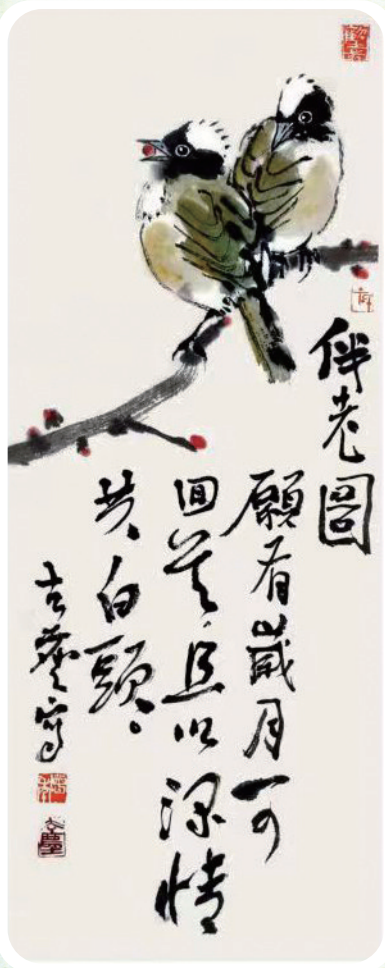 伴老圖
願有歲月可
回首且以深情
共白頭